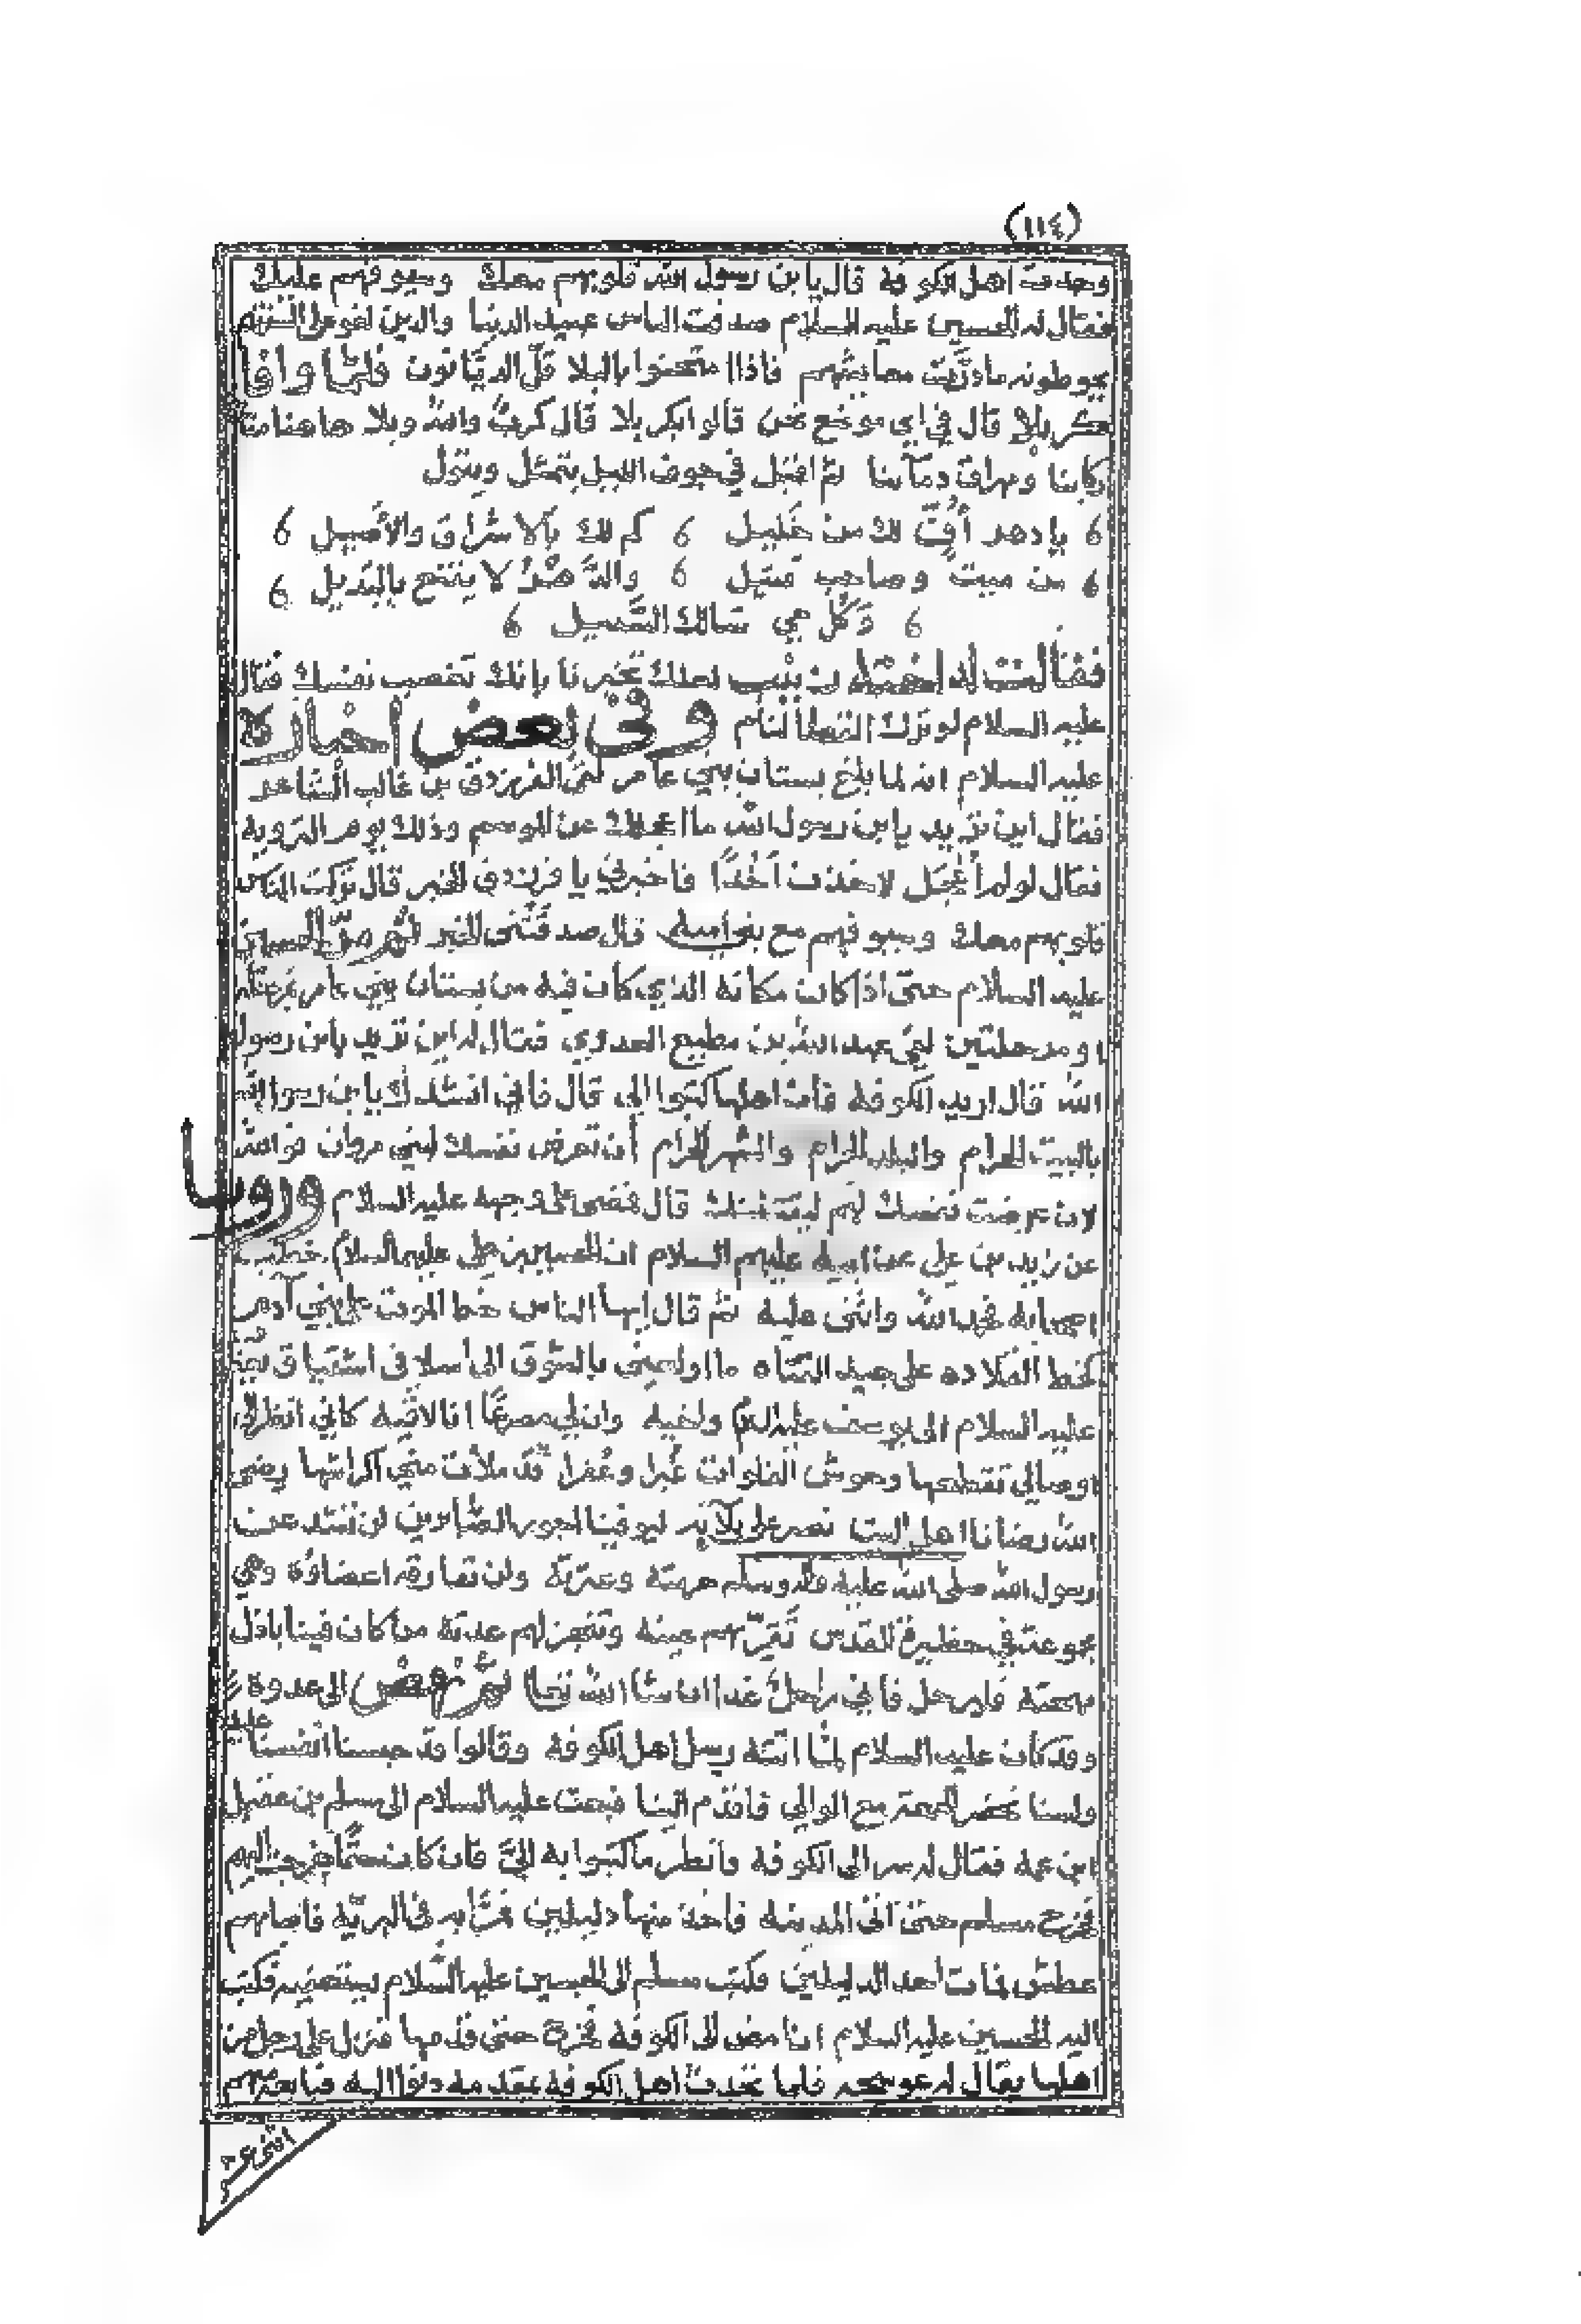 (١١٤)
وخلفت اهل الكوفة قال يا بن رسول الله قلوبهم معك وسيوفهم عليك
فقال له الحسين عليه السلام صدقت الناس عبيد الدنيا والدين لغو على السنتهم
يحوطونه ما درّت معايشهم فاذا امتحنوا بالبلا قلّ الديّانون فلمّا وافا
كربلا قال في اي موضع نحن قالوا بكربلا قال كربٌ والله وبلا هاهنا مناخ
ركابنا ومهراق دمآئنا ثم اقبل في جوف الليل يتمثل ويقول
يا دهر أُفٍّ لك من خَليل كم لك بالاشراق والأصيل
من ميت وصاحب قتيل والدَّهْرُ لا يقنع بالبديل
وكلّ حي سالك السَّبيل
فقالت له اخته زينب لعلك تخبرنا بانك تغصب نفسك فقال
عليه السلام لو ترك القطا لنام وفي بعض أخباره
عليه السلام انه لما بلغ بستان بني عامر لقي الفرزدق بن غالب الشاعر
فقال اين تريد يا بن رسول الله ما اعجلك عن الموسم وذلك يوم التروية
فقال لو لم أعْجَل لاخذت أخْذًا فاخبرني يا فرزدق الخبر قال تركت الناس
قلوبهم معك وسيوفهم مع بني اميه قال صدقتني الخبر ثم مرّ الحسين
عليه السلام حتى اذا كان مكانه الذي كان فيه من بستان بني عامر بمرحلة
او مرحلتين لقي عبد الله بن مطيع العدوي فقال له اين تريد يا بن رسول
الله قال اريد الكوفة فان اهلها كتبوا الي قال فاني انشدك يا بن رسول الله
بالبيت الحرام والبلد الحرام والشهر الحرام أن تعرض نفسك لبني مروان فوالله
لان عرضت نفسك لهم ليقتلنك قال فمضى على وجهه عليه السلام وروينا
عن زيد بن علي عن ابيه عليهم السلام ان الحسين بن علي عليهما السلام خطب
اصحابه فحمد الله واثنى عليه ثم قال ايها الناس خط الموت على بني آدم
كخط القلاده على جيد الفتاه ما اولعني بالشوق الى اسلافي اشتياق يعقوب
عليه السلام الى يوسف عليه السلام واخيه وان لي مصرعًا انا لاقيه كاني انظر الى
اوصالي تقطعها وحوش الفلوات غُبرا وعُفرا قد ملأت مني اكراشها رضى
الله رضانا اهل البيت نصبر على بلآئه ليوفينا اجور الصابرين لن تشذ عن
رسول الله صلى الله عليه وآله وسلم حرمته وعترته ولن تفارقه اعضاؤه وهي
مجموعة في حظيرة القدس تَقَرّ بهم عينه وتنجز لهم عدته من كان فينا باذل
مهجته فليرحل فاني راحلٌ غدا ان شاء الله تعالى ثم نهض الى عدوه
وقد كان عليه السلام لمّا اتته رسل اهل الكوفة وقالوا قد حبسنا انفسنا عليك
ولسنا نحضر الجمعة مع الوالي فاقدم الينا فبعث عليه السلام الى مسلم بن عقيل
ابن عمه فقال له سر الى الكوفة وانظر ما كتبوا به الىَّ فان كان حقًّا خرجت اليهم
فخرج مسلم حتى اتى المدينة واخذ منها دليلين فمرّا به في البريّة فاصابهم
عطش فمات احد الدليلين فكتب مسلم الى الحسين عليه السلام يستعفيه فكتب
اليه الحسين عليه السلام ان امض الى الكوفة فخرج حتى قدمها فنزل على رجل من
اهلها يقال له عوسجه فلما تحدث اهل الكوفة بمقدمه دنوا اليه فبايعه منهم
اثنى عشر